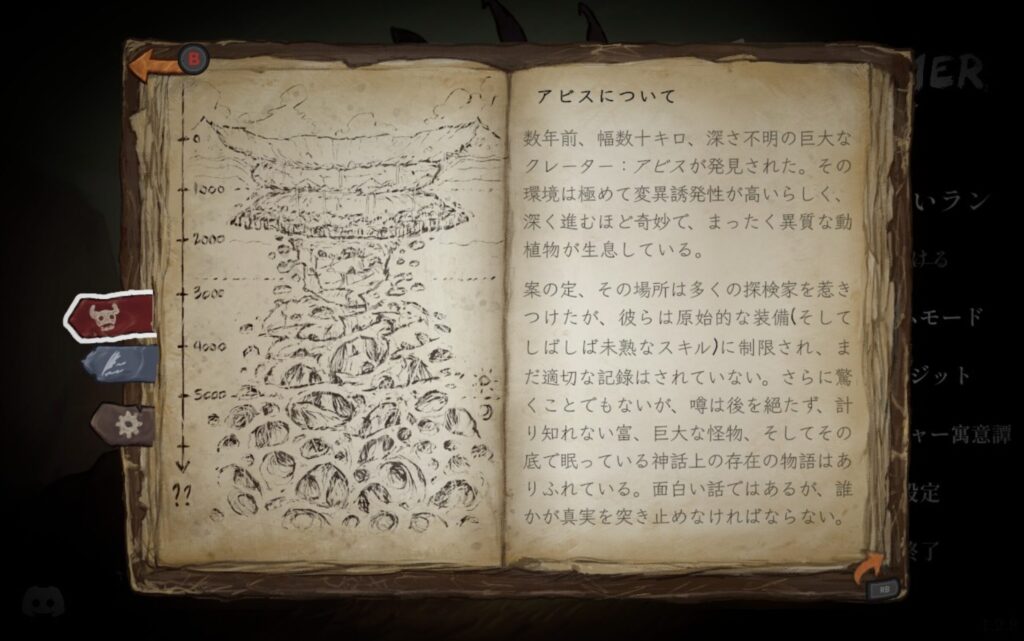 B
0
1000
2000
3000
4000
5000
??
アビスについて
数年前、幅数十キロ、深さ不明の巨大な
クレーター：アビスが発見された。その
環境は極めて変異誘発性が高いらしく、
深く進むほど奇妙で、まったく異質な動
植物が生息している。
案の定、その場所は多くの探検家を惹き
つけたが、彼らは原始的な装備(そして
しばしば未熟なスキル)に制限され、ま
だ適切な記録はされていない。さらに驚
くことでもないが、噂は後を絶たず、計
り知れない富、巨大な怪物、そしてその
底で眠っている神話上の存在の物語はあ
りふれている。面白い話ではあるが、誰
かが真実を突き止めなければならない。
RB
MER
いラン
ける
ムモード
ジット
ャー寓意譚
設定
終了